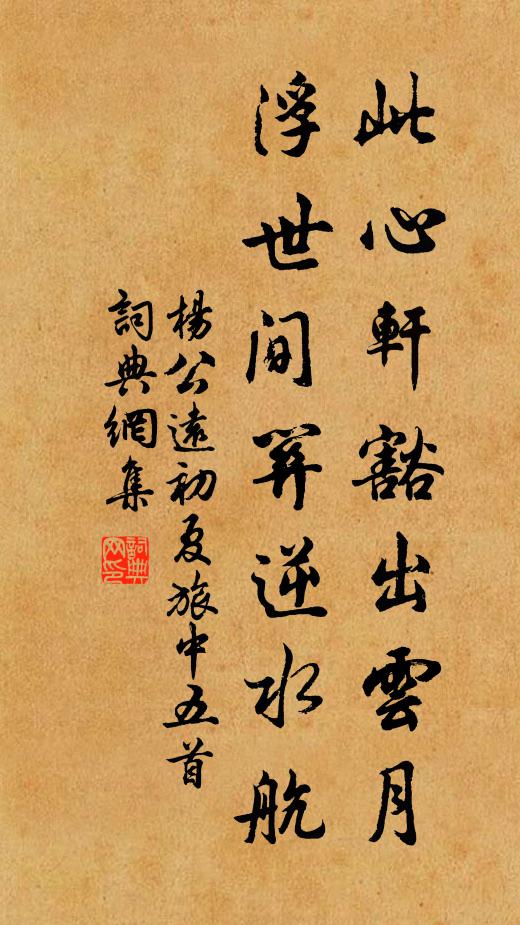 此心軒豁出雲月
浮世間關逆水航
楊公遠初夏旅中五首
詞典網集
詞典网印